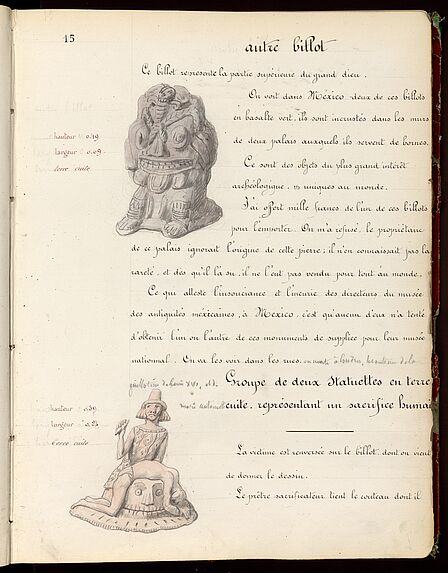 15
autre billot
Ce billot représente la partie supérieure du grand dieu.
On voit dans México deux de ces billots
en basalte vert, ils sont incrustés dans les murs
hauteur 0.19
de deux palais auxquels ils servent de bornes.
largeur 0.09
Ce sont des objets du plus grand intérêt
terre cuite
archéologique, et uniques au monde.
J'ai offert mille francs de l'un de ces billots
pour l'emporter. On m'a refusé, le propriétaire
de ce palais ignorait l'origine de cette pierre; il n'en connaissait pas la
rareté, et dès qu'il l'a su, il ne l'eut pas vendu pour tout au monde.
Ce qui atteste l'insouciance et l'incurie des directeurs du musée
des antiquités mexicaines, à Mexico, c'est qu'aucun d'eux n'a tenté
d'obtenir l'un ou l'autre de ces monuments de supplice pour leur musée
national. On va les voir dans les rues.
Groupe de deux Statuettes en terre
hauteur 0.39
cuite, représentant un sacrifice humain
largeur
terre cuite
La victime est renversée sur le billot dont on vient
de donner le dessin.
Le prêtre sacrificateur tient le couteau dont il